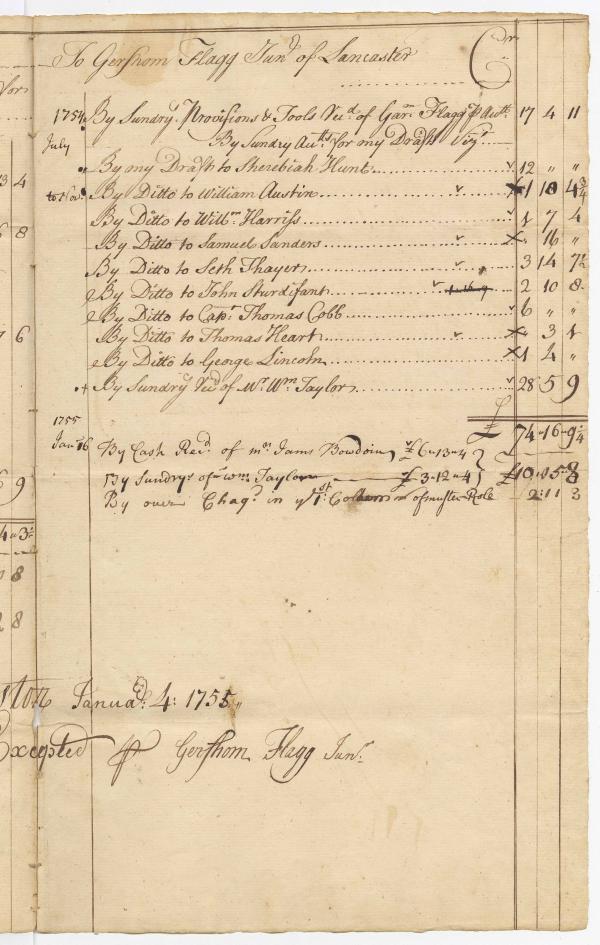 To Gershom Flagg Junr of Lancaster Cr
1754 By Sundry Provisions & Tools Recd of Garm Flagg pr Acctt 17 4 11
July By Sundry Acctts for my Drafts Vizt
" By my Draft to Sherebiah Hunt 12 " "
to Novr By Ditto to William Austin 1 18 4 3/4
By Ditto to Willm Harriss 1 7 4
By Ditto to Samuel Sanders " 16 "
By Ditto to Seth Thayer 3 14 7 1/2
By Ditto to John Sturdifant 2 10 8
By Ditto to Capt Thomas Cobb 6 " "
By Ditto to Thomas Heart " 3 1
By Ditto to George Lincoln 1 4 "
By Sundry Recd of Mr Wm Taylor 28 5 9
£ 74 16 9 1/4
1755
Janr 16 By Cash Recd of mr Jams Bowdoin £6-13-4
By Sundrys of wm Taylor £3-12-4 £10 05 8
By over Chagd in ye 1st of muster Role 2:11 3
Janua 4: 1755
Excepted pr Gershom Flagg Junr